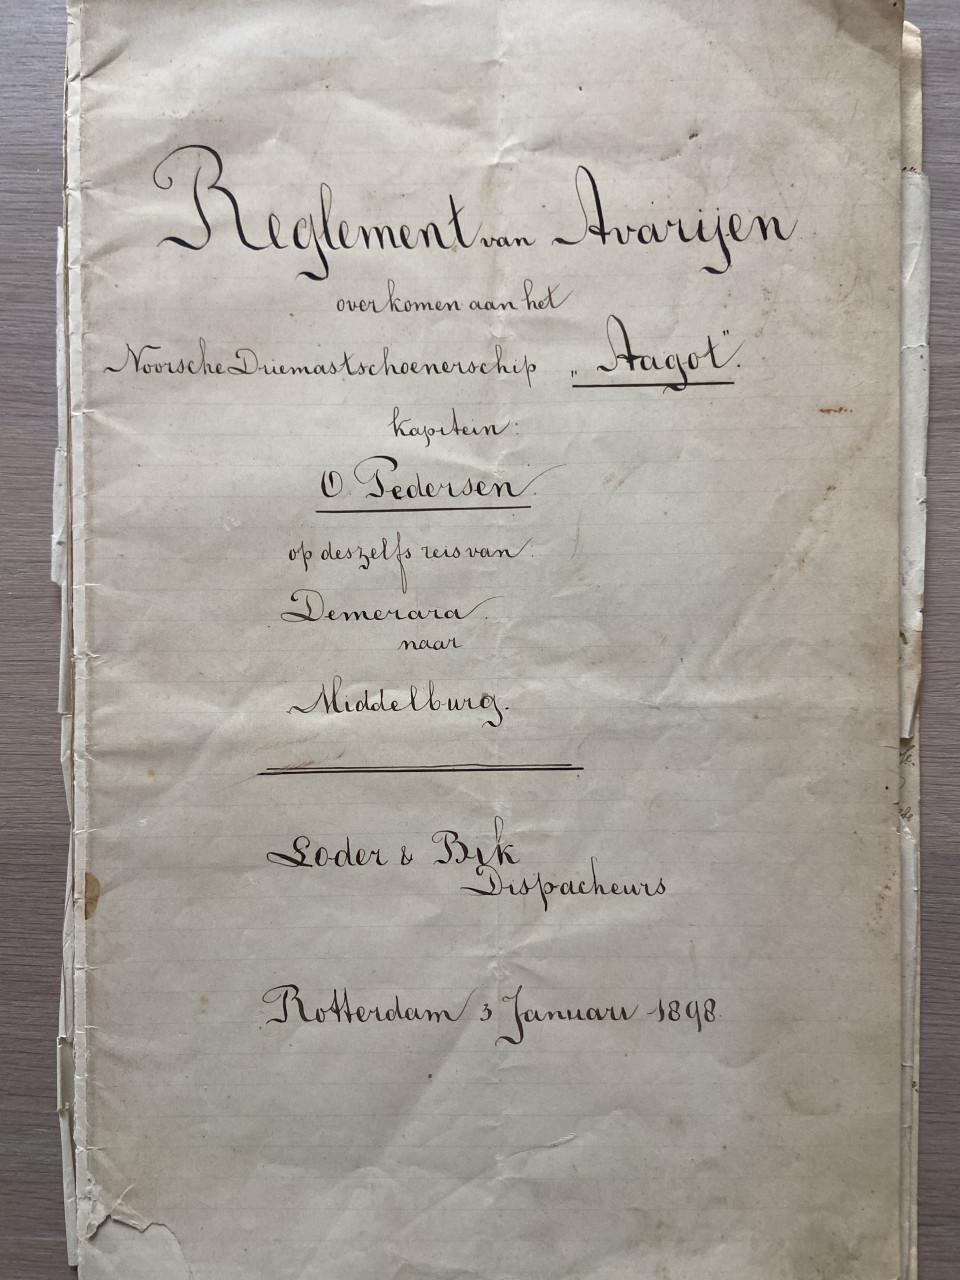 Reglement van Avarijen
overkomen aan het
Noorsche Driemastschoenerschip „Aagot".
kapitein:
O. Pedersen.
op deszelfs reis van:
Demerara.
naar
Middelburg.
Loder & Bijk
Dispacheurs
Rotterdam 3 Januari 1898